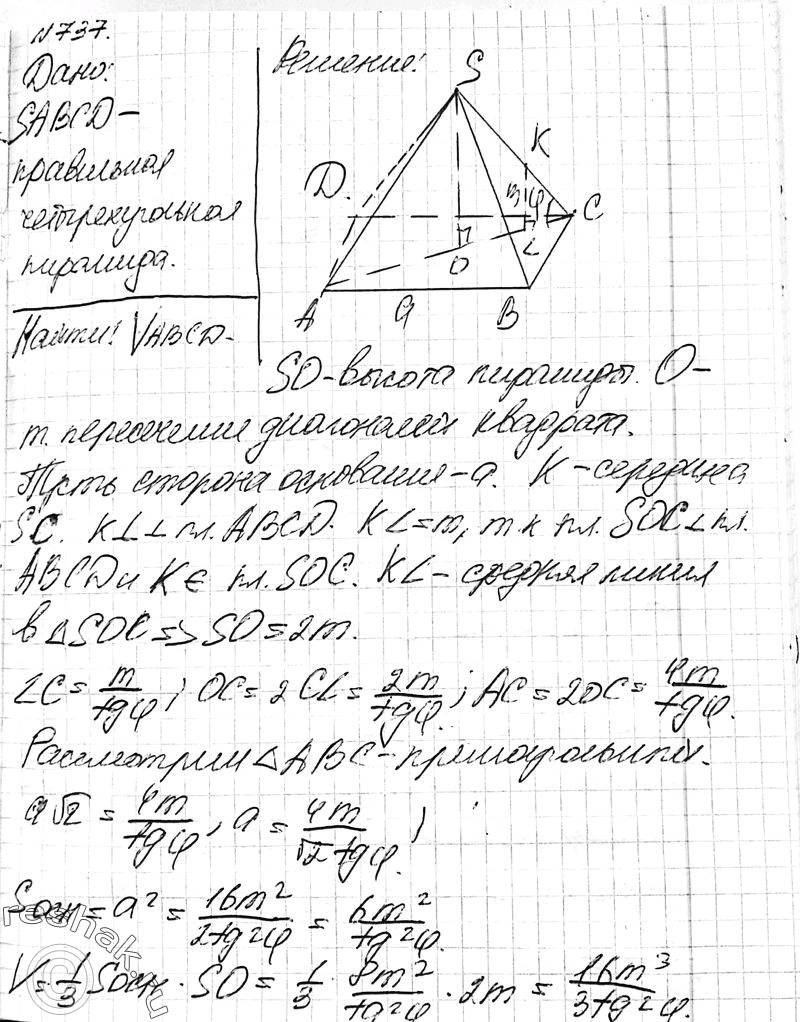 N737.
Дано:
SABCD–
правильная
четырехугольная
пирамида.
Найти: VABCD–
Решение:
S
D
K
m φ
C
O
L
A
a
B
SO–высота пирамиды. O–
т. пересечения диагоналей квадрата.
Пусть сторона основания–a. K–середина
SC. KL⊥ пл. ABCD. KL=m, т.к пл. SOC⊥пл.
ABCD и K∈ пл. SOC. KL–средняя линия
в △SOC => SO=2m.
LC = m/tgφ; OC = 2CL = 2m/tgφ; AC = 2OC = 4m/tgφ.
Рассмотрим △ABC–прямоугольный.
a√2 = 4m/tgφ; a = 4m/√2 tgφ;
Sосн = a² = 16m²/2tg²φ = 6m²/tg²φ.
V = 1/3 Sосн · SO = 1/3 · 8m²/tg²φ · 2m = 16m³/3tg²φ.
reshak.ru